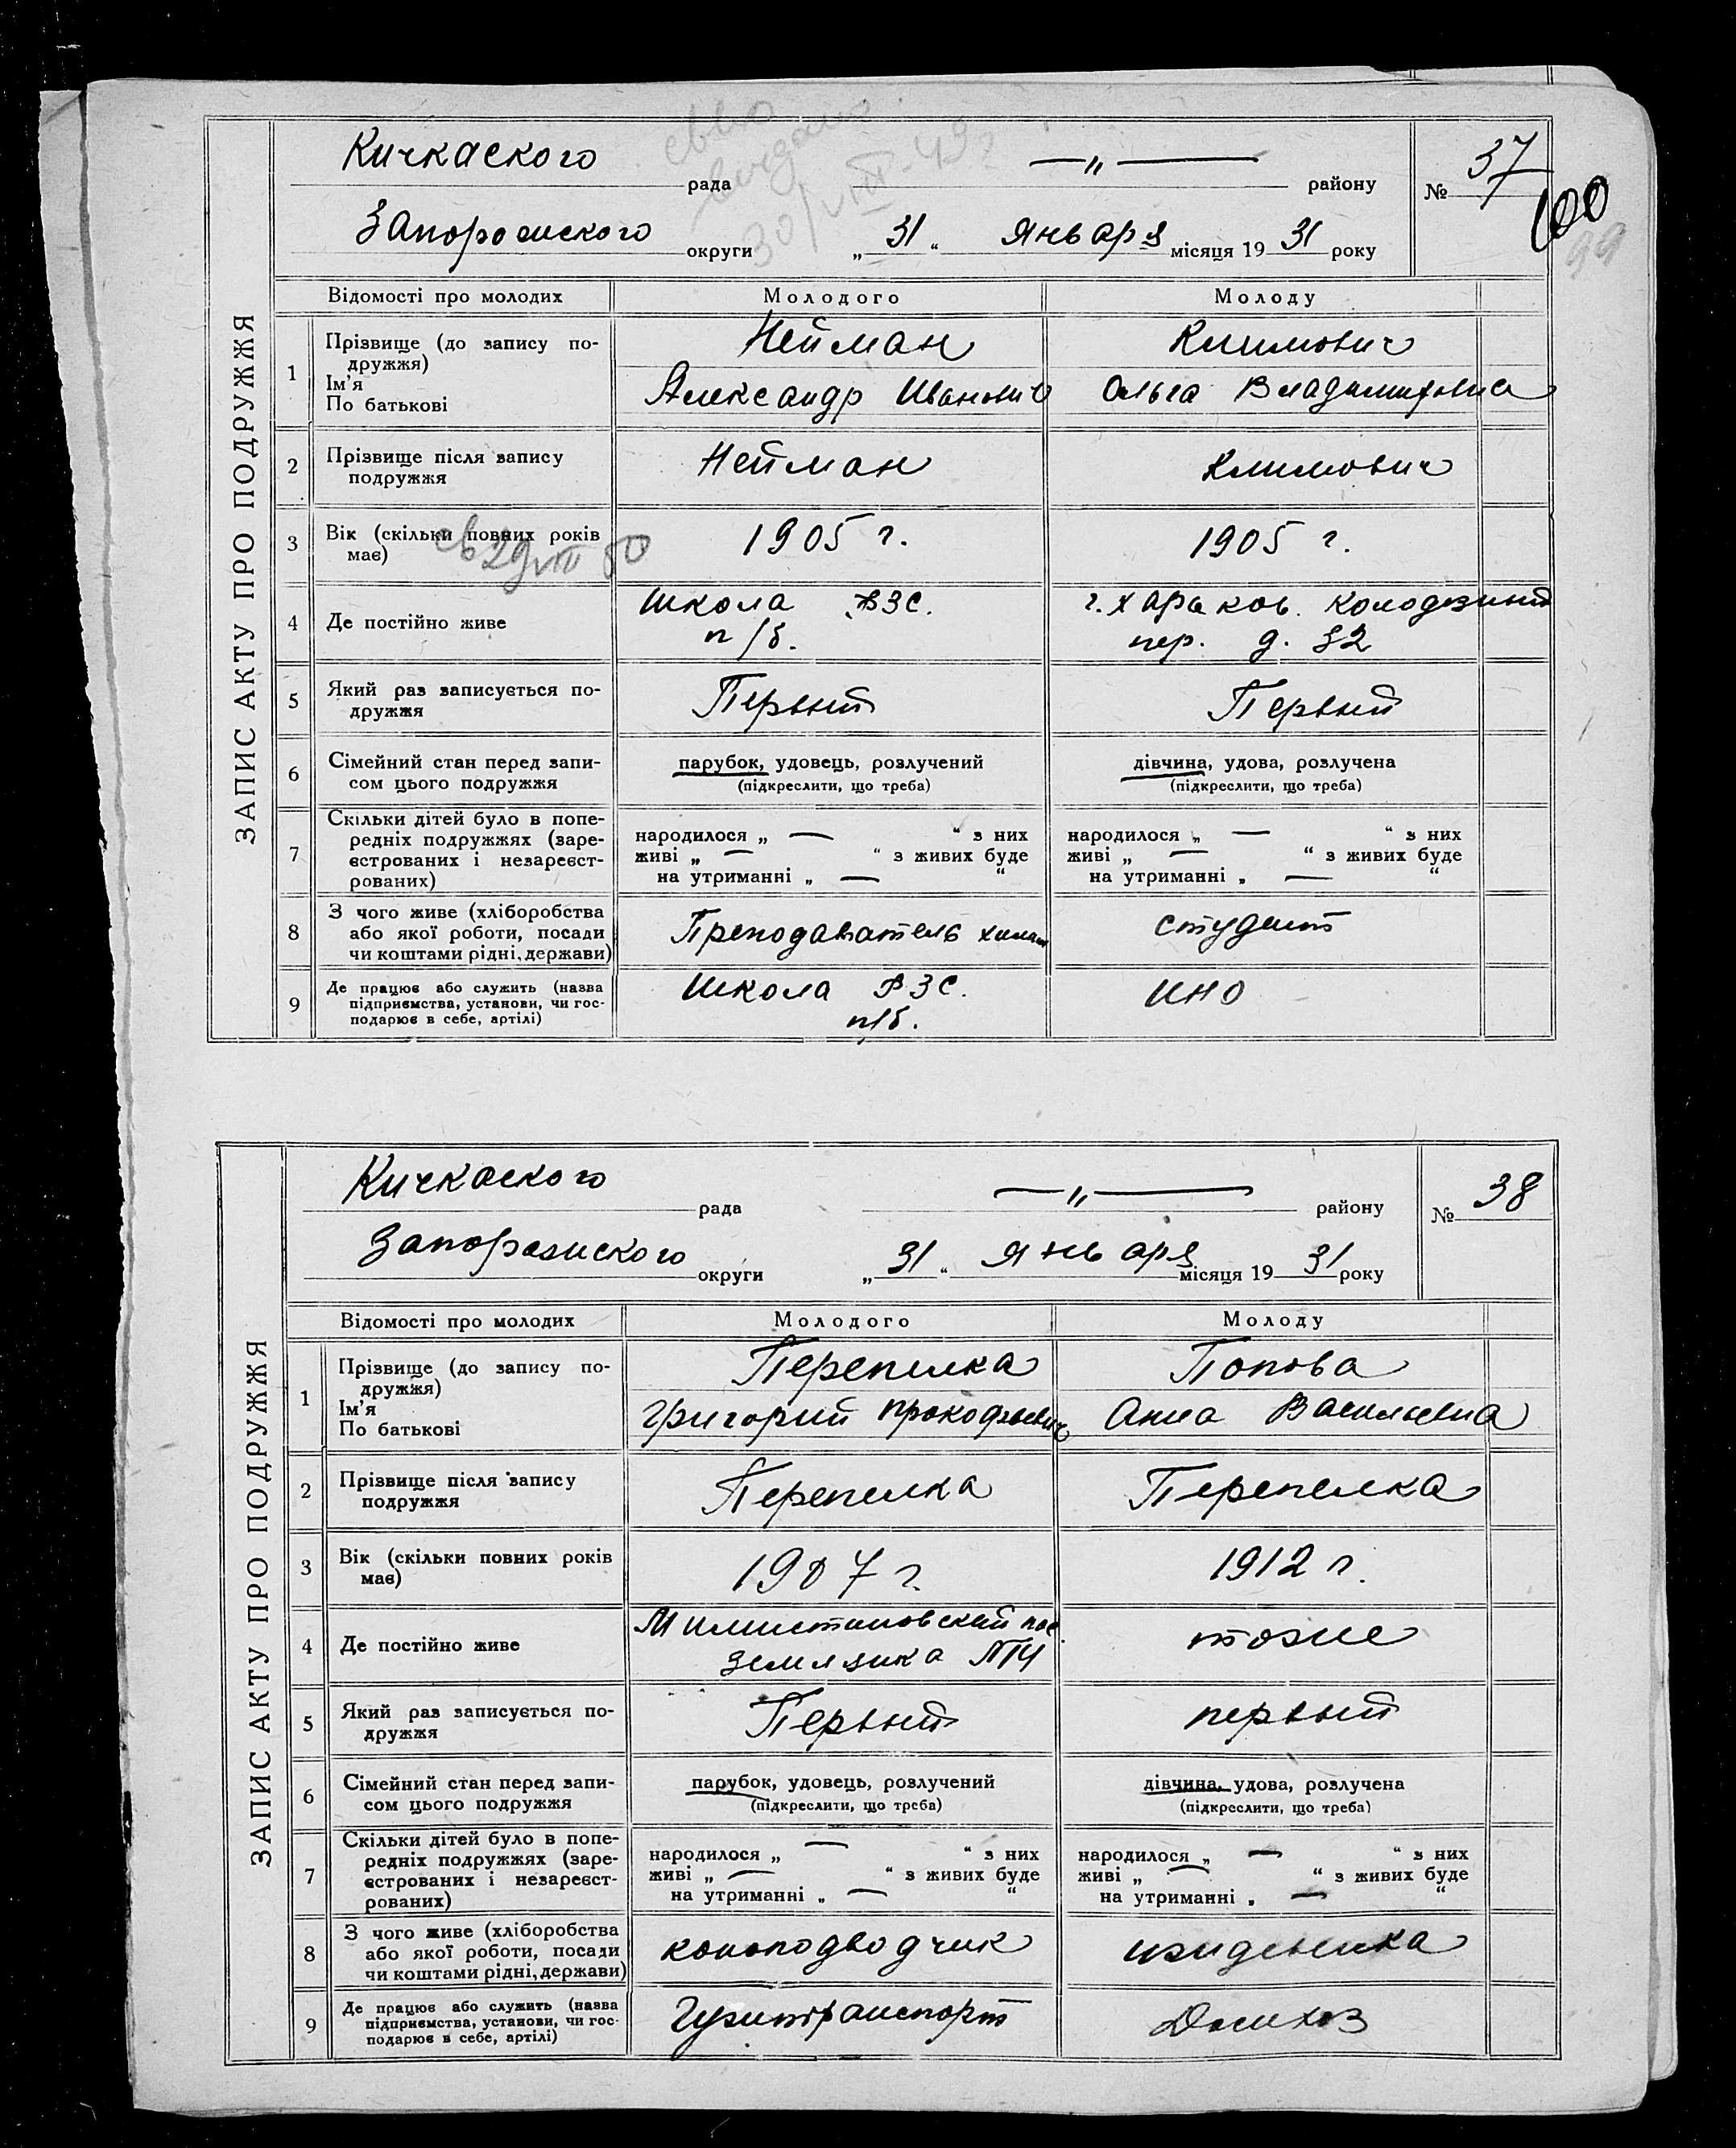 Кичкаского рада —„— району № 37
100
99
Запорожского округи „31“ января місяця 1931 року
30/VIII-49г
ЗАПИС АКТУ ПРО ПОДРУЖЖЯ
Відомості про молодих Молодого Молоду
1 Прізвище (до запису подружжя) Нейман Климович
Ім'я
По батькові Александр Иванович Ольга Владимировна
2 Прізвище після запису
подружжя Нейман Климович
3 Вік (скільки повних років
має) 1905 г. 1905 г.
св 29 VIII 50
4 Де постійно живе Школа ФЗС. г. Харьков.
п/б. пер. д. 32
5 Який раз записується по-
дружжя Первый Первый
6 Сімейний стан перед запи-
сом цього подружжя парубок, удовець, розлучений дівчина, удова, розлучена
(підкреслити, що треба) (підкреслити, що треба)
7 Скільки дітей було в попе-
редніх подружжях (заре-
єстрованих і незареєст-
рованих)
народилося „ — “ з них народилося „ — “ з них
живі „ — “ з живих буде живі „ — “ з живих буде
на утриманні „ — “ на утриманні „ — “
8 З чого живе (хліборобства
або якої роботи, посади
чи коштами рідні, держави) Преподаватель студент
9 Де працює або служить (назва
підприємства, установи, чи гос-
подарює в себе, артілі) Школа ФЗС. ИНО
п/б.
Кичкаского рада —„— району № 38
Запорожского округи „31“ января місяця 1931 року
ЗАПИС АКТУ ПРО ПОДРУЖЖЯ
Відомості про молодих Молодого Молоду
1 Прізвище (до запису по-
дружжя) Перепелка Попова
Ім'я
По батькові Григорий Прокофьевич Анна Васильевна
2 Прізвище після запису
подружжя Перепелка Перепелка
3 Вік (скільки повних років
має) 1907 г. 1912 г.
4 Де постійно живе пос. тоже
землянка
5 Який раз записується по-
дружжя Первый первый
6 Сімейний стан перед запи-
сом цього подружжя парубок, удовець, розлучений дівчина, удова, розлучена
(підкреслити, що треба) (підкреслити, що треба)
7 Скільки дітей було в попе-
редніх подружжях (заре-
єстрованих і незареєст-
рованих)
народилося „ — “ з них народилося „ — “ з них
живі „ — “ з живих буде живі „ — “ з живих буде
на утриманні „ — “ на утриманні „ — “
8 З чого живе (хліборобства
або якої роботи, посади
чи коштами рідні, держави) коноподводчик иждевенка
9 Де працює або служить (назва
підприємства, установи, чи гос-
подарює в себе, артілі) Гужтранспорт Домхоз